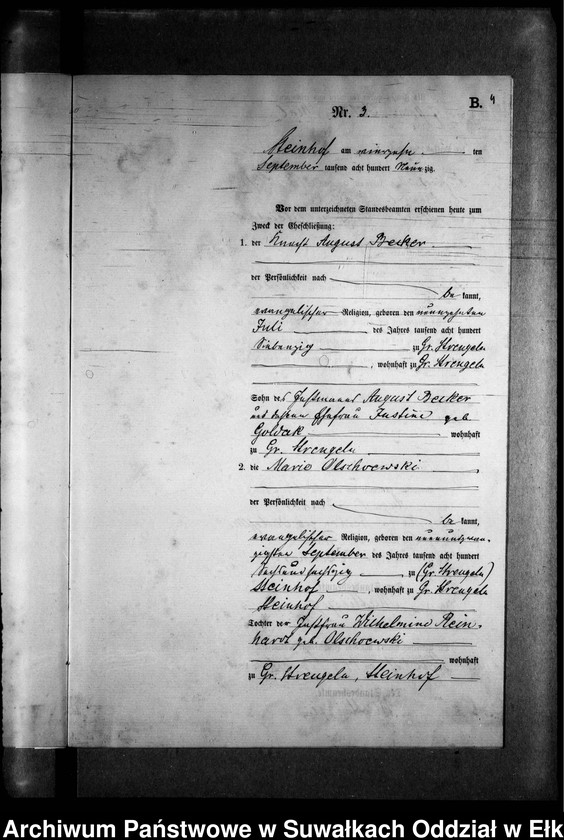 B. 4
Nr. 3.
Steinhof am vierzehn ten
September tausend acht hundert Neunzig.
Vor dem unterzeichneten Standesbeamten erschienen heute zum
Zweck der Eheschließung:
1. der Knecht August Becker
der Persönlichkeit nach
be kannt,
evangelischer Religion, geboren den neunzehnten
Juli des Jahres tausend acht hundert
Siebenzig zu Gr. Strengeln
, wohnhaft zu Gr. Strengeln
Sohn des Instmanns August Becker
und dessen Ehefrau Justine geb
Goldak wohnhaft
zu Gr. Strengeln
2. die Marie Olschoewski
der Persönlichkeit nach
be kannt,
evangelischer Religion, geboren den neunundzwan-
zigsten September des Jahres tausend acht hundert
sechsundsechszig zu (Gr. Strengeln)
Steinhof, wohnhaft zu Gr. Strengeln
Steinhof
Tochter der Instfrau Wilhelmine Rein-
hardt geb. Olschoewski
wohnhaft
zu Gr. Strengeln, Steinhof
Archiwum Państwowe w Suwałkach Oddział w Ełk